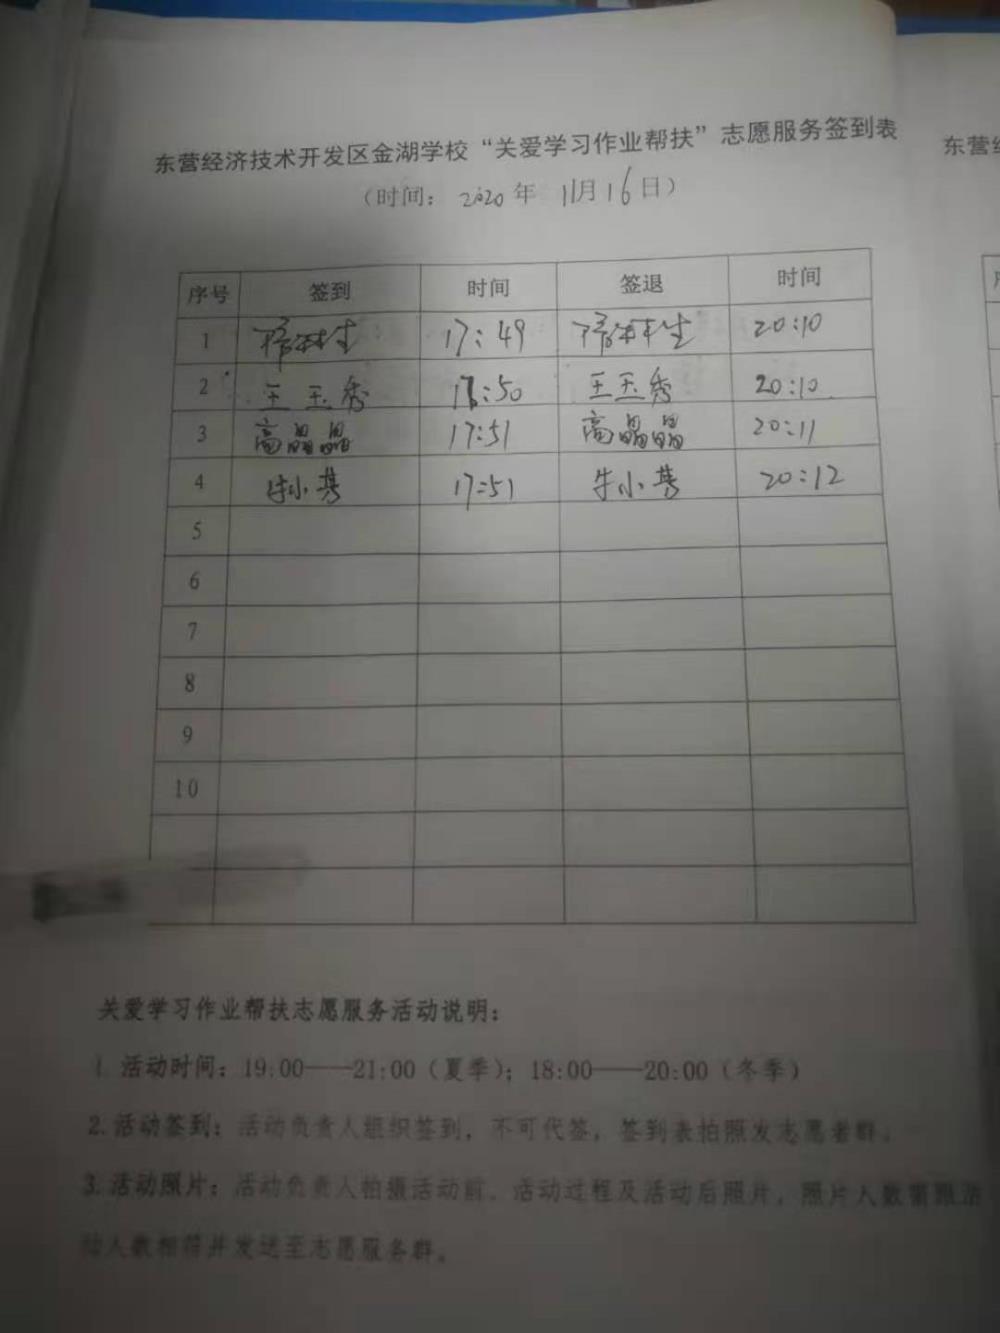 东营经济技术开发区金湖学校“关爱学习作业帮扶”志愿服务签到表
东营经
（时间：2020年 11月16日）
序号 签到 时间 签退 时间
1 17:49 20:10
2 王玉秀 17:50 王玉秀 20:10
3 高晶晶 17:51 高晶晶 20:11
4 牛小梦 17:51 牛小梦 20:12
5
6
7
8
9
10
关爱学习作业帮扶志愿服务活动说明：
1.活动时间：19:00——21:00（夏季）；18:00——20:00（冬季）
2.活动签到：活动负责人组织签到，不可代签，签到表拍照发志愿者群。
3.活动照片：活动负责人拍摄活动前、活动过程及活动后照片，照片人数需跟活
动人数相符并发送至志愿服务群。